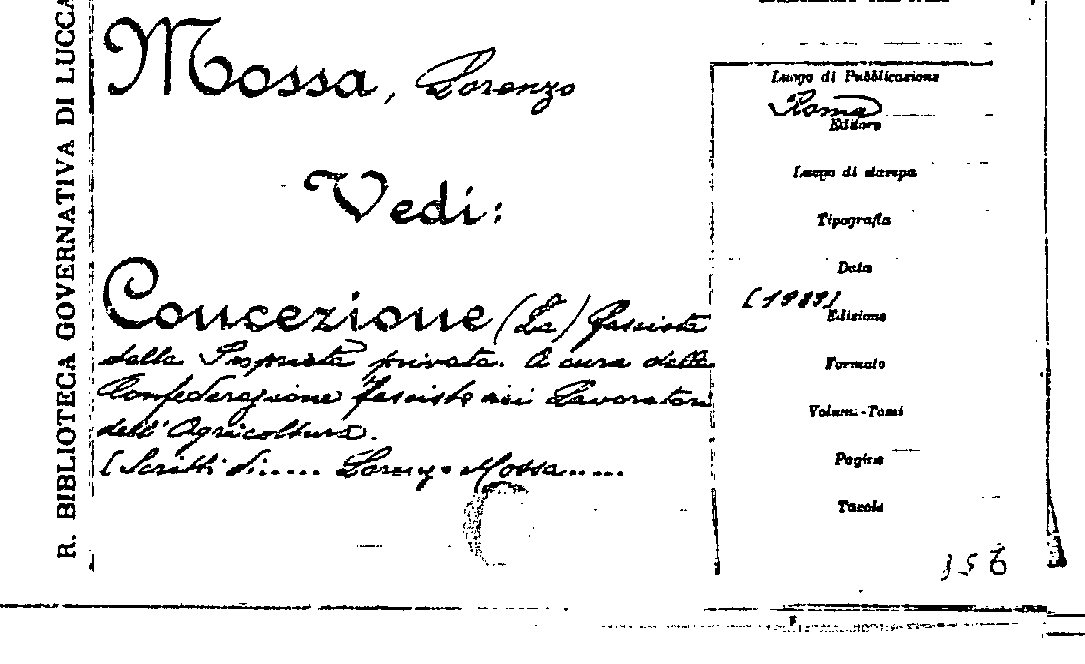 R. BIBLIOTECA GOVERNATIVA DI LUCCA
Mossa, Lorenzo
Vedi:
Concezione (La) fascista
della Proprietà privata. A cura della
Confederazione fascista dei Lavoratori
dell'Agricoltura.
[Scritti di..... Lorenzo Mossa.....
Luogo di Pubblicazione
Roma
Editore
Luogo di stampa
Tipografia
Data
Edizione
Formato
Volumi-Tomi
Pagine
Tavole